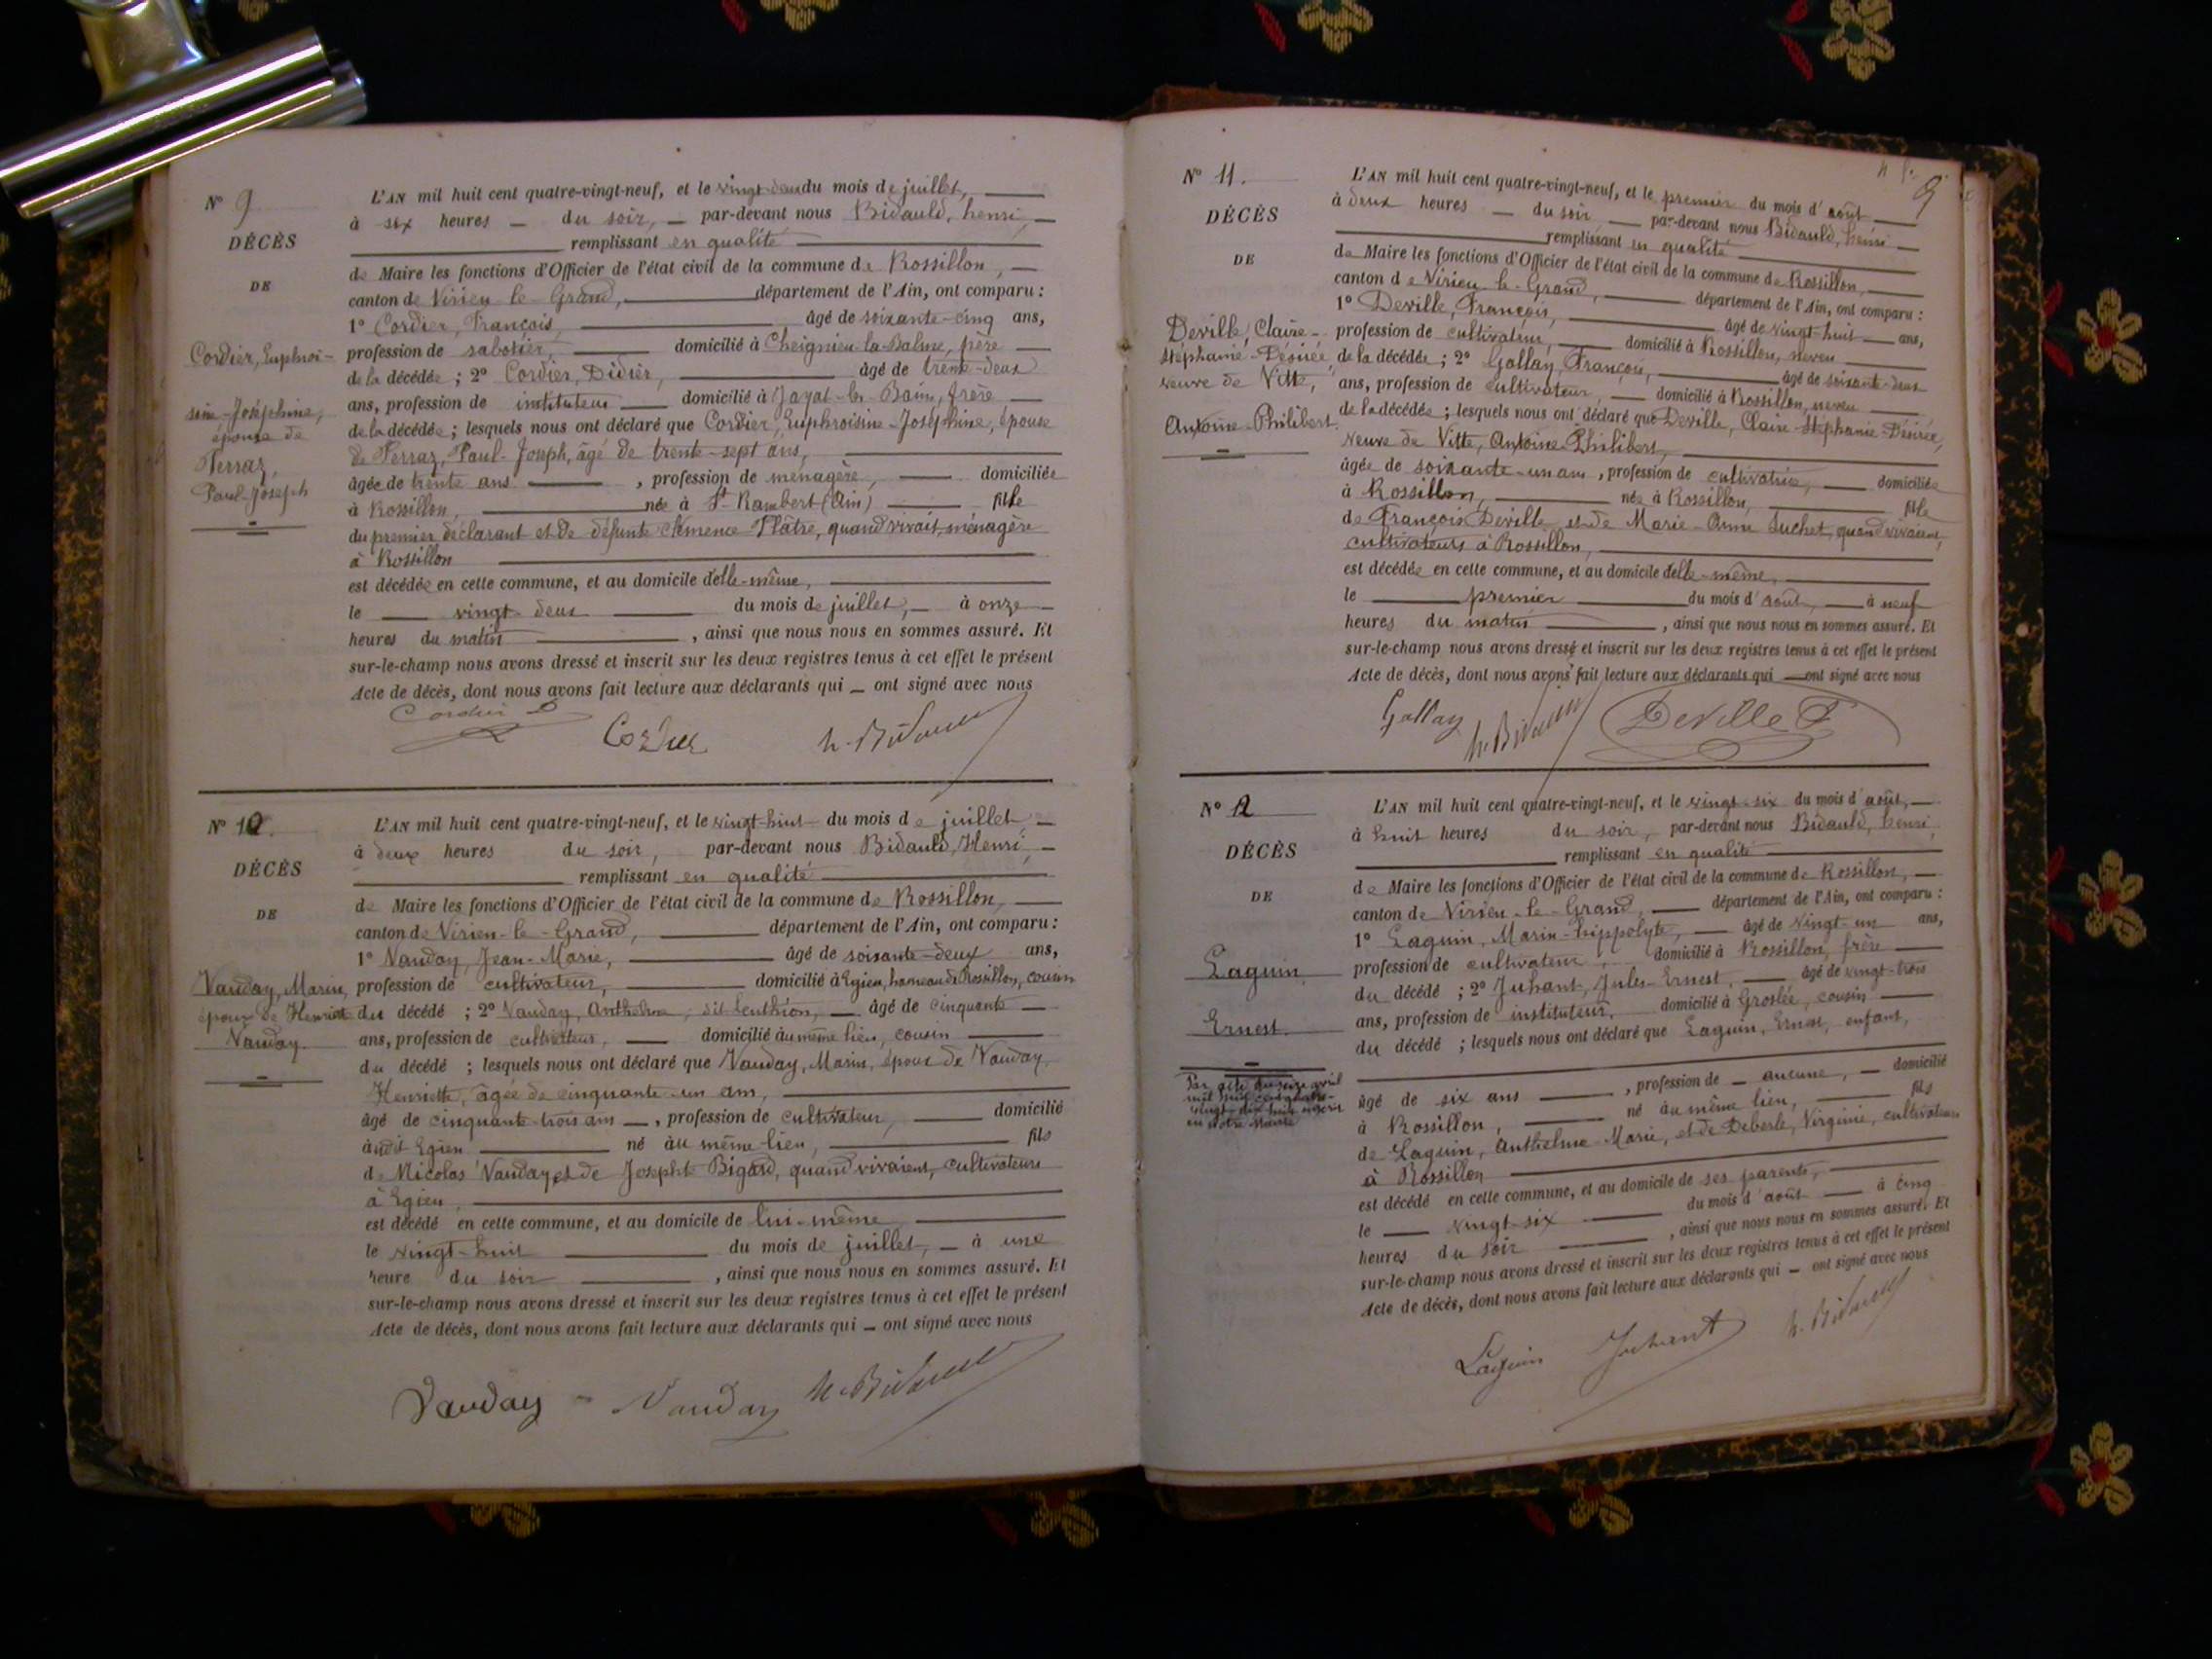 N° 9
DÉCÈS
DE
Cordier, Euphroi-
sine-Joséphine,
épouse de
Perraz,
Paul-Joseph
L'AN mil huit cent quatre-vingt-neuf, et le vingt-deux du mois de juillet,
à six heures du soir, par-devant nous Bidauld, henri,
remplissant en qualité
de Maire les fonctions d'Officier de l'état civil de la commune de Rossillon,
canton de Virieu le-Grand, département de l'Ain, ont comparu :
1° Cordier, François, âgé de soixante-cinq ans,
profession de sabotier, domicilié à Cheignieu-la-Balme, père
de la décédée ; 2° Cordier, Didier, âgé de trente-deux
ans, profession de instituteur domicilié à frère
de la décédée ; lesquels nous ont déclaré que Cordier, Euphroisine-Joséphine, épouse
de Perraz, Paul-Joseph, âgé de trente-sept ans,
âgée de trente ans , profession de ménagère, domiciliée
à Rossillon, née à St-Rambert (Ain) fille
du premier déclarant et de défunte Clémence Plâtre, quand vivait, ménagère
à Rossillon
est décédée en cette commune, et au domicile d'elle-même,
le vingt-deux du mois de juillet, à onze
heures du matin , ainsi que nous nous en sommes assuré. Et
sur-le-champ nous avons dressé et inscrit sur les deux registres tenus à cet effet le présent
Acte de décès, dont nous avons fait lecture aux déclarants qui ont signé avec nous
Cordier D Cordier h. Bidauld
N° 10.
DÉCÈS
DE
Vauday, Marin,
époux de Henriette
Vauday.
L'AN mil huit cent quatre-vingt-neuf, et le vingt-huit du mois de juillet,
à deux heures du soir, par-devant nous Bidauld, Henri,
remplissant en qualité
de Maire les fonctions d'Officier de l'état civil de la commune de Rossillon,
canton de Virieu-le-Grand, département de l'Ain, ont comparu :
1° Vauday, Jean-Marie, âgé de soixante-deux ans,
profession de cultivateur, domicilié à Egieu, hameau de Rossillon, cousin
du décédé ; 2° Vauday, Anthelme, dit âgé de cinquante
ans, profession de cultivateur, domicilié au même lieu, cousin
du décédé ; lesquels nous ont déclaré que Vauday, Marin, époux de Vauday,
Henriette, âgée de cinquante-un ans,
âgé de cinquante-trois ans , profession de cultivateur, domicilié
audit Egieu né au même lieu, fils
de Nicolas Vauday, et de Josephte Bigard, quand vivaient, cultivateurs
à Egieu,
est décédé en cette commune, et au domicile de lui-même
le vingt-huit du mois de juillet, à une
heure du soir , ainsi que nous nous en sommes assuré. Et
sur-le-champ nous avons dressé et inscrit sur les deux registres tenus à cet effet le présent
Acte de décès, dont nous avons fait lecture aux déclarants qui ont signé avec nous
Vauday Vauday h. Bidauld
9
N° 11.
DÉCÈS
DE
Deville, Claire-
Stéphanie-Désirée
veuve de Vitte,
Antoine-Philibert.
L'AN mil huit cent quatre-vingt-neuf, et le premier du mois d'août
à deux heures du soir par-devant nous Bidauld, henri
remplissant en qualité
de Maire les fonctions d'Officier de l'état civil de la commune de Rossillon,
canton de Virieu le-Grand, département de l'Ain, ont comparu :
1° Deville, François, âgé de vingt-huit ans,
profession de cultivateur, domicilié à Rossillon, neveu
de la décédée ; 2° Gallay, François, âgé de soixante-deux
ans, profession de cultivateur, domicilié à Rossillon, neveu
de la décédée ; lesquels nous ont déclaré que Deville, Claire-Stéphanie-Désirée,
veuve de Vitte, Antoine-Philibert,
âgée de soixante-un ans , profession de cultivatrice, domiciliée
à Rossillon, née à Rossillon, fille
de François Deville et de Marie-Anne Suchet, quand vivaient,
cultivateurs à Rossillon,
est décédée en cette commune, et au domicile d'elle-même,
le premier du mois d'août, à neuf
heures du matin , ainsi que nous nous en sommes assuré. Et
sur-le-champ nous avons dressé et inscrit sur les deux registres tenus à cet effet le présent
Acte de décès, dont nous avons fait lecture aux déclarants qui ont signé avec nous
Gallay h. Bidauld Deville F
N° 12
DÉCÈS
DE
Laguin
Ernest.
L'AN mil huit cent quatre-vingt-neuf, et le vingt-six du mois d'août,
à huit heures du soir, par-devant nous Bidauld, henri,
remplissant en qualité
de Maire les fonctions d'Officier de l'état civil de la commune de Rossillon,
canton de Virieu-le-Grand, département de l'Ain, ont comparu :
1° Laguin, Marin-hippolyte, âgé de vingt-un ans,
profession de cultivateur, domicilié à Rossillon, frère
du décédé ; 2° Juhant, Jules-Ernest, âgé de vingt-trois
ans, profession de instituteur, domicilié à Groslée, cousin
du décédé ; lesquels nous ont déclaré que Laguin, Ernest, enfant,
âgé de six ans , profession de aucune, domicilié
à Rossillon, né au même lieu, fils
de Laguin, Anthelme-Marie, et de Deberle, Virginie, cultivateurs
à Rossillon
est décédé en cette commune, et au domicile de ses parents,
le vingt-six du mois d'août à cinq
heures du soir , ainsi que nous nous en sommes assuré. Et
sur-le-champ nous avons dressé et inscrit sur les deux registres tenus à cet effet le présent
Acte de décès, dont nous avons fait lecture aux déclarants qui ont signé avec nous
Laguin Juhant h. Bidauld